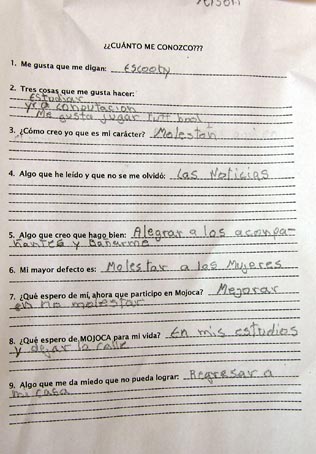 ¿¿CUÁNTO ME CONOZCO???
1. Me gusta que me digan: Escooby
2. Tres cosas que me gusta hacer:
Estudiar
yr a conputacion
Me gusta jugar futt bool
3. ¿Cómo creo yo que es mi carácter? Moleston
4. Algo que he leído y que no se me olvidó: Las Noticias
5. Algo que creo que hago bien: Alegrar a los aconpa-
ñantes y Bañarme
6. Mi mayor defecto es: Molestar a las Mujeres
7. ¿Qué espero de mí, ahora que participo en Mojoca? Mejorar
en no molestar
8. ¿Qué espero de MOJOCA para mi vida? En mis estudios
y dejar la calle
9. Algo que me da miedo que no pueda lograr: Regresar a
mi casa